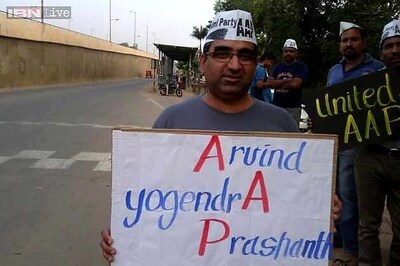 IBN Live
Party
AAP
Arvind
yogendrA
Prashanth
United
AAP